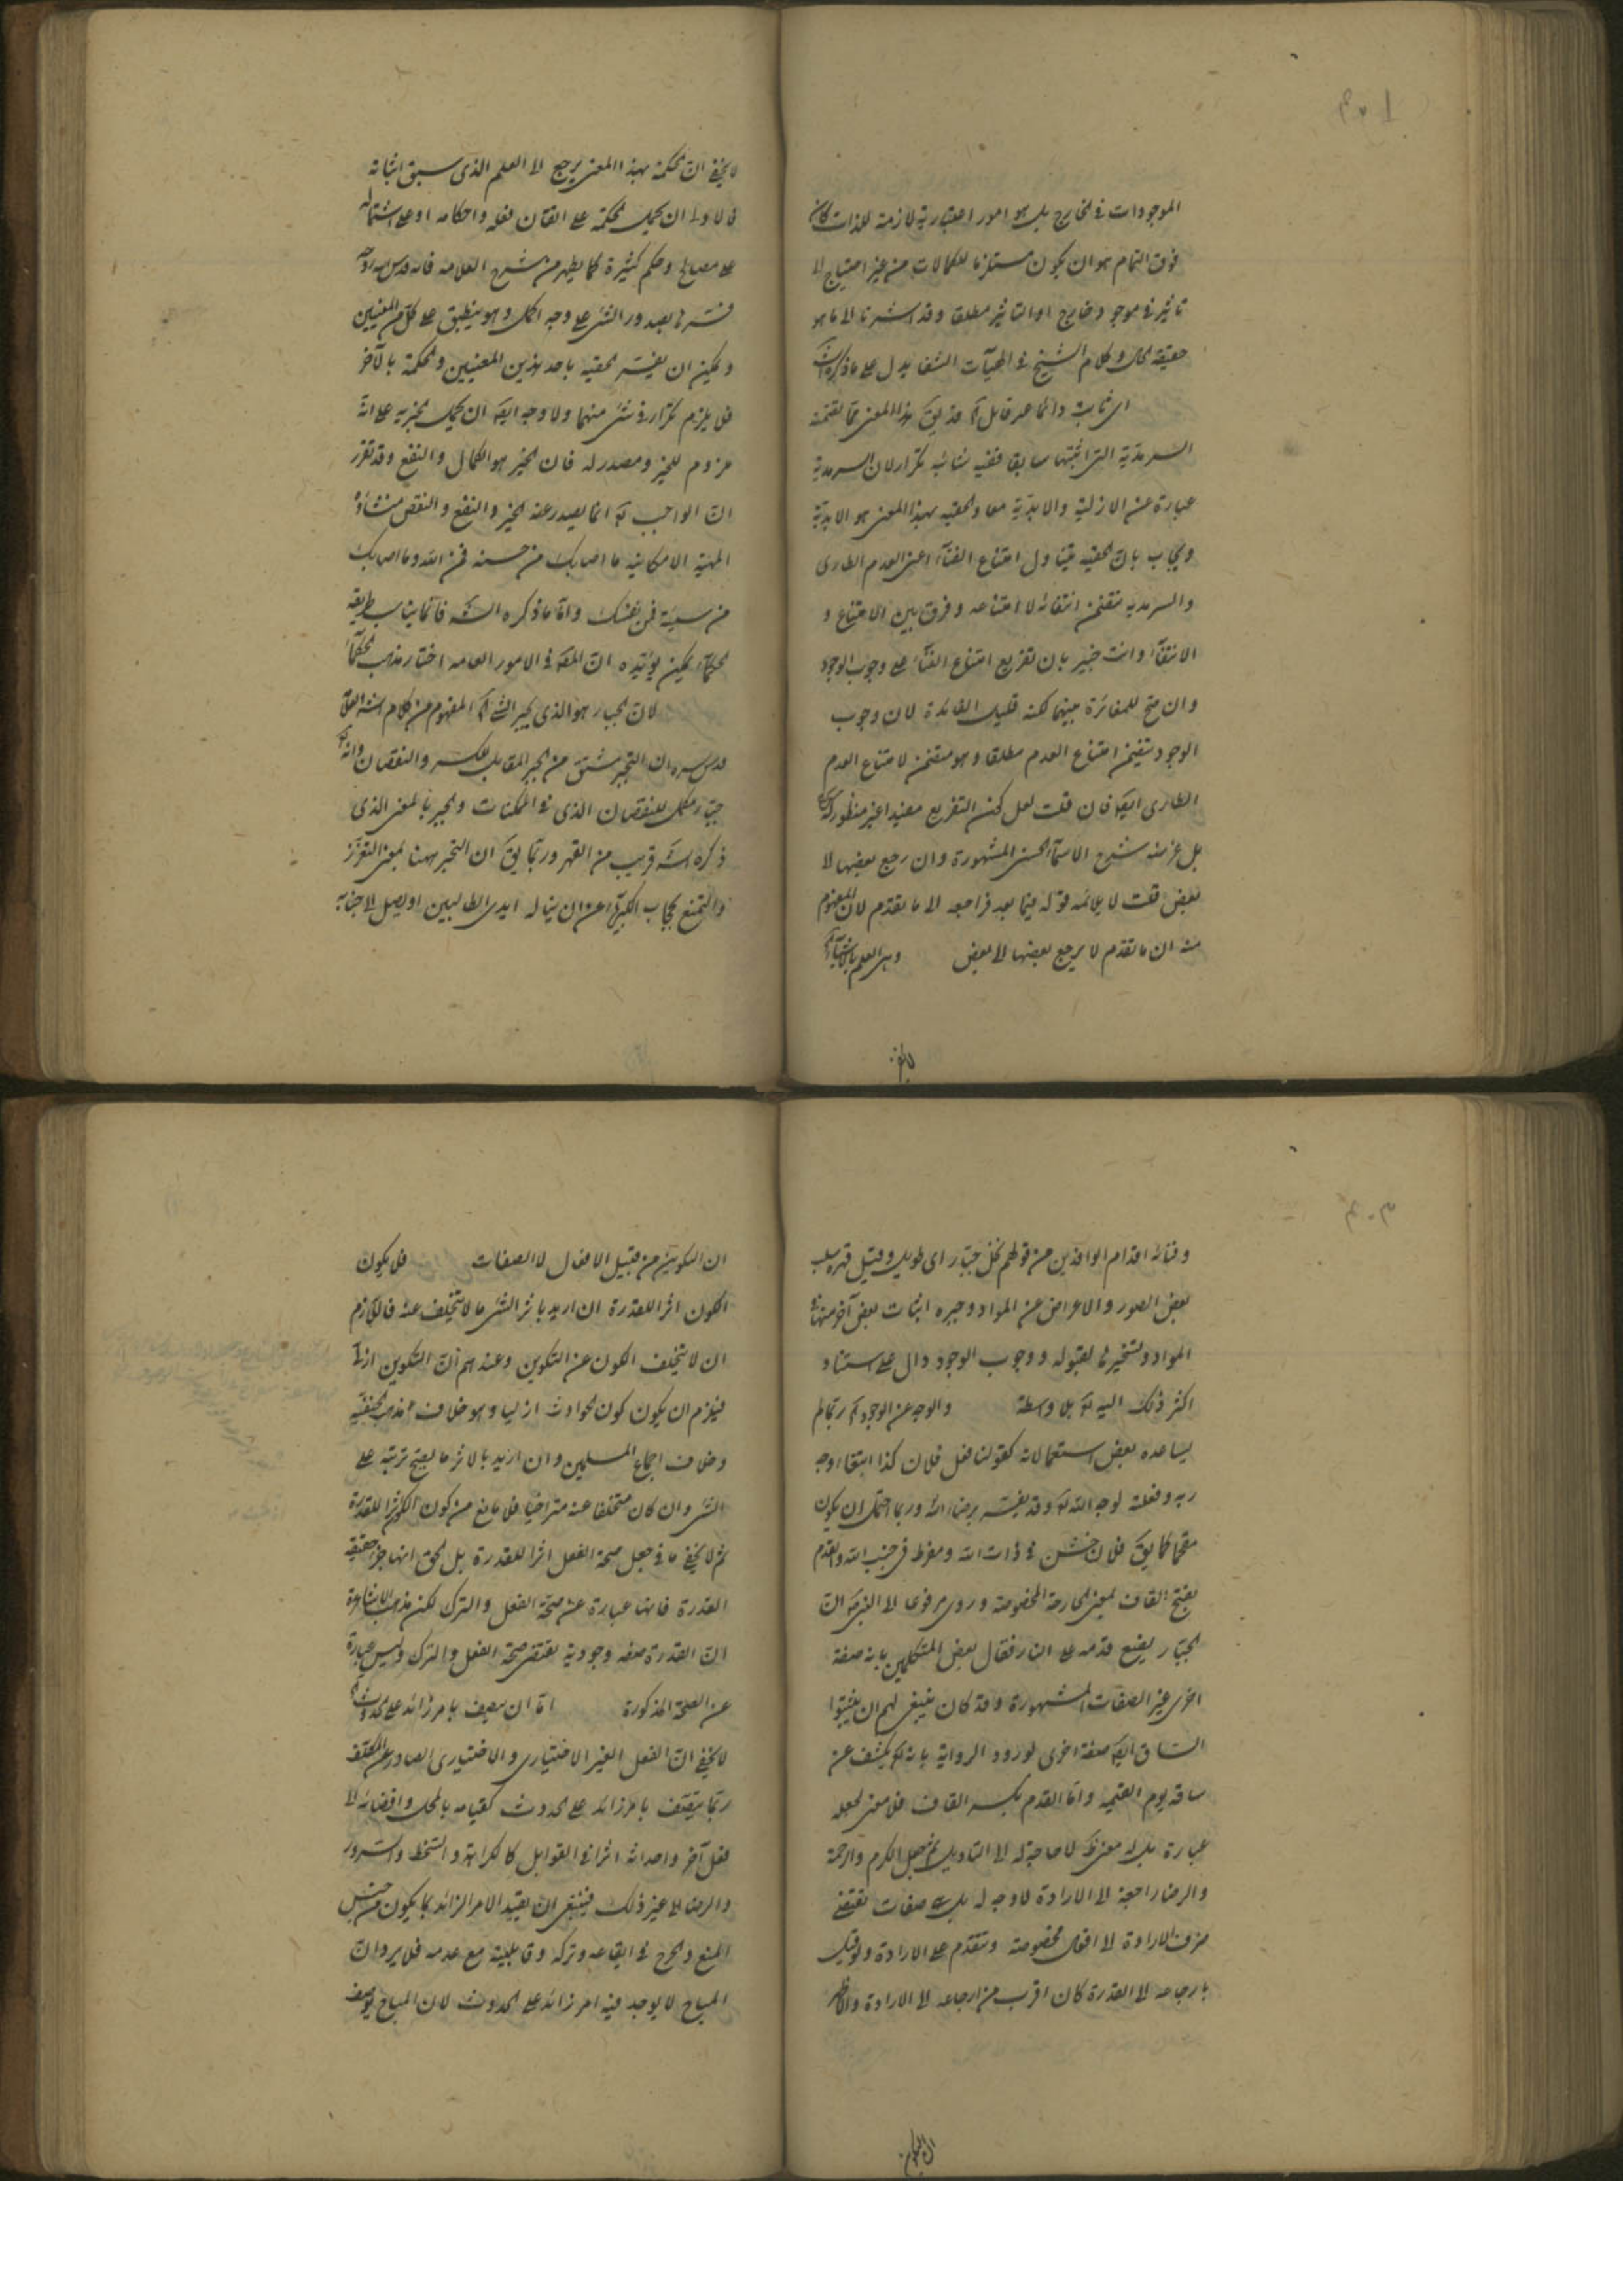 الموجودات في الخارج بل هو امور اعتبارية لازمة للذات كان
فوق التمام هو ان يكون مستلزما للكمالات من غير احتياج الى
تاثير في موجود خارج او التاثير مطلقا وقد اشرنا الى ما هو
حقيقة الحال وكلام الشيخ في الهيآت الشفا يدل على ما ذكره
اى ثابت دائما قد يق هذا المعنى مما تضمنه
السرمدية التي اثبتها سابقا ففيه شائبة تكرار لان السرمدية
عبارة عن الازلية والابدية معا والحقية بهذا المعنى هو الابدية
ويجاب بان الحقية يتناول امتناع الفناء اعنى العدم الطارى
والسرمدية تتضمن انتفائه لا امتناعه وفرق بين الامتناع و
الانتفاء وانت خبير بان تفريع امتناع الفناء على وجوب الوجود
وان صح للمغائرة بينهما لكنه قليل الفائدة لان وجوب
الوجود يتضمن امتناع العدم مطلقا وهو متضمن لامتناع العدم
الطارى ايضا فان قلت لعل كون التفريع مفيدا غير منظور
بل غرضه شرح الاسماء الحسنى المشهورة وان رجع بعضها الى
بعض قلت لا يلائمه قوله فيما بعد فراجعه الى ما تقدم لان المفهوم
منه ان ما تقدم لا يرجع بعضها الى بعض وهى العلم بالاشياء
لا يخفى
لا يخفى ان الحكمة بهذا المعنى يرجع الى العلم الذى سبق اثباته
فالاولى ان يحمل الحكمة على اتقان فعله واحكامه او على اشتماله
على مصالح وحكم كثيرة كما يظهر من شرح العلامة فانه قدس سره
فسرها بصدور الشئ على وجه اكمل وهو ينطبق على كل من المعنيين
ويمكن ان يفسر الحقية باحد هذين المعنيين والحكمة بالآخر
فلا يلزم تكرار في شئ منهما ولا وجه ايضا ان يحمل الخيرية على انه
ملزوم للخير ومصدر له فان الخير هو الكمال والنفع وقد تقرر
ان الواجب تع انما يصدر عنه الخير والنفع والنقص منشاؤه
المهية الامكانية ما اصابك من حسنة فمن الله وما اصابك
من سيئة فمن نفسك واما ما ذكره الشه فانما يناسب طريقة
الحكماء يمكن يؤيده ان المص في الامور العامه اختار مذهب الحكماء
لان الجبار هو الذى يجبر الشئ المفهوم من كلام
قدس سره ان التجبر مشتق من الجبر المقابل للكسر والنقصان
جبار مكمل للنقصان الذى في الممكنات والجبر بالمعنى الذى
ذكره الشه قريب من القهر وربما يق ان التجبر ههنا بمعنى التعزز
والتمنع بحجاب الكبرياء عن ان يناله ايدى الطالبين او يصل الى جنابه
وفنائه اقدام الوافدين من قولهم نخل جبار اى طويل وقيل قهره سلب
بعض الصور والاعراض عن المواد وجبره اثبات بعض آخر منها في
المواد وتسخيرها لقبوله ووجوب الوجود دال على استناد
اكثر ذلك اليه تع بلا واسطة والوجه عن الوجود ربما لم
يساعده بعض استعمالاته كقولنا فعل فلان كذا ابتغاء وجه
ربه وفعلته لوجه الله تع وقد يفسر برضاء الله وربما احتمل ان يكون
مقحما كما يق فلان خشن في ذات الله ومفرط في جنب الله والقدم
بفتح القاف بمعنى الجارحة المخصوصة وروى مرفوعا الى النبى ان
الجبار يضع قدمه على النار فقال بعض المتكلمين بانه صفة
اخرى غير الصفات المشهورة وقد كان ينبغى لهم ان يثبتوا
الساق ايضا صفة اخرى لورود الرواية بانه تع يكشف عن
ساقه يوم القيمة واما القدم بكسر القاف فلا معنى لجعله
عبارة بل له معنى لا حاجة له الى التاويل ثم جعل الكرم والرحمة
والرضا راجعة الى الارادة لا وجه له بل هى صفات تقتضى
صرف الارادة الى افعال مخصوصة وتتقدم على الارادة ولو قيل
بارجاعه الى القدرة كان اقرب من ارجاعه الى الارادة والظ
ان التكوين
ان التكوين من قبيل الافعال لا الصفات فلا يكون
الكون اثرا للقدرة ان اريد باثر الشئ ما لا يتخلف عنه فاللازم
ان لا يتخلف الكون عن التكوين وعندهم ان التكوين ازلى
فيلزم ان يكون كون الحوادث ازليا وهو خلاف مذهب الحنفية
وخلاف اجماع المسلمين وان اريد بالاثر ما يصح ترتبه على
الشئ وان كان متخلفا عنه متراخيا فلا مانع من كون الكون اثرا للقدرة
ثم لا يخفى ما في جعل صحة الفعل اثرا للقدرة بل الحق انها جزء حقيقة
القدرة فانها عبارة عن صحة الفعل والترك لكن مذهب الاشاعرة
ان القدرة صفه وجودية يقتضى صحة الفعل والترك وليس عبارة
عن الصحة المذكورة اما ان يتصف بامر زائد على الحدوث
لا يخفى ان الفعل الغير الاختيارى والاختيارى الصادر عن المكلف
ربما يتصف بامر زائد على الحدوث كقيامه بالمحل وافضائه الى
فعل آخر واحداثه اثرا في القوابل كالكراهة والسخط والسرور
والرضا الى غير ذلك فينبغى ان يقيد الامر الزائد بما يكون من جنس
المنع والحرج في ايقاعه وتركه وقابلية مع عدمه فلا يرد ان
المباح لا يوجد فيه امر زائد على الحدوث لان المباح يوصف